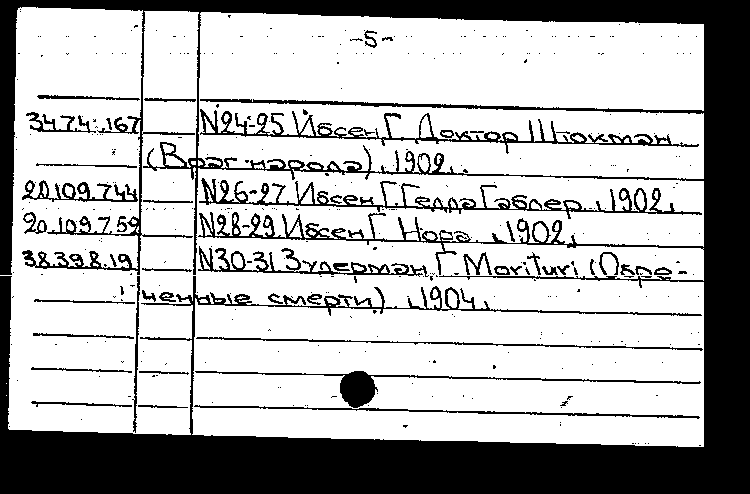 -5-
34.74.167 N24-25 Ибсен, Г. Доктор Штокман
(Враг народа). 1902.
20.109.744 N26-27. Ибсен, Г. Гедда Габлер. 1902.
20.109.759 N28-29. Ибсен, Г. Нора. 1902.
38.39.8.19 N30-31 Зудерман, Г. Morituri. (Обре-
ченные смерти). 1904.